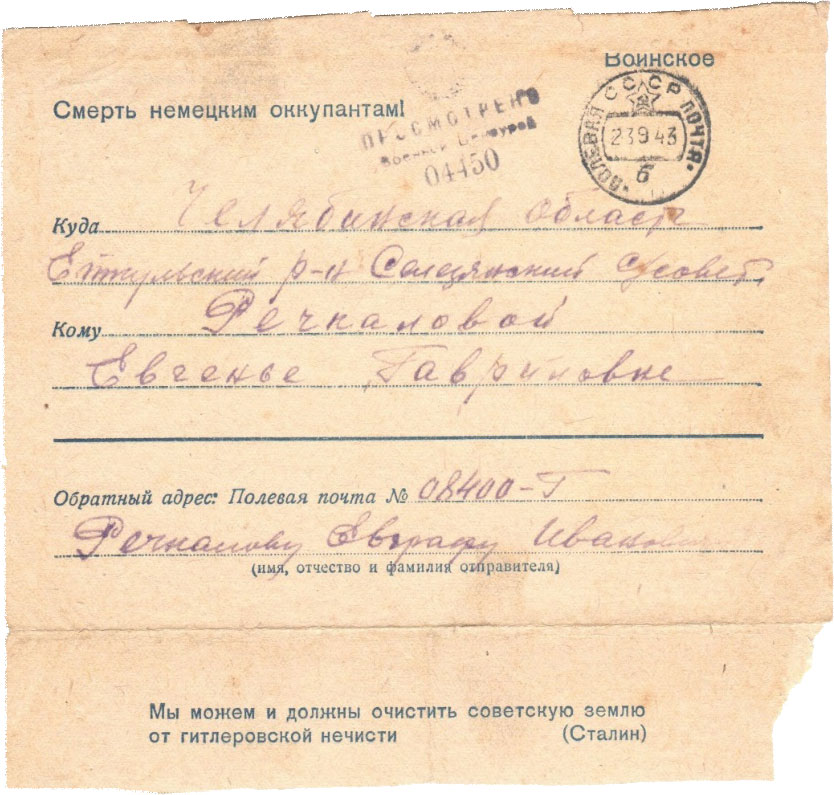 Воинское
Смерть немецким оккупантам!
ПРОСМОТРЕНО
Военной Цензурой
04450
ПОЛЕВАЯ ПОЧТА
СССР
23 9 43
б
Куда Челябинская область
Еткульский р-н Селезянский с/совет
Кому Речкаловой
Евгенье Гавриловне
Обратный адрес: Полевая почта № 08400-Г
Речкалову Евграфу Ивановичу
(имя, отчество и фамилия отправителя)
Мы можем и должны очистить советскую землю
от гитлеровской нечисти (Сталин)